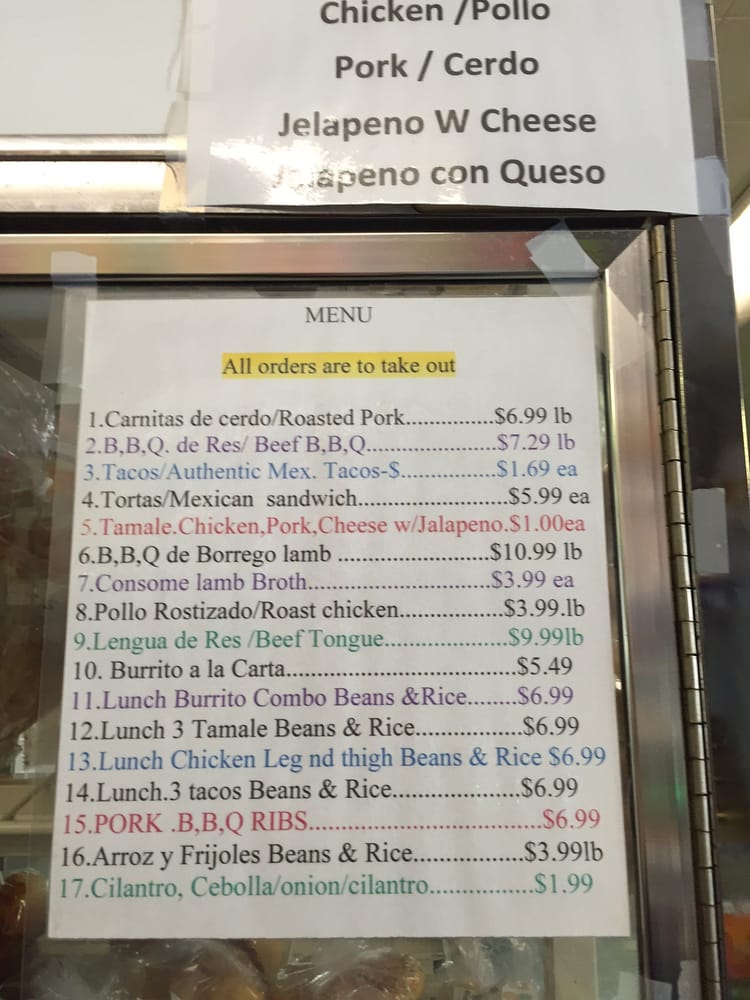 Chicken /Pollo
Pork / Cerdo
Jelapeno W Cheese
Jalapeno con Queso
MENU
All orders are to take out
1.Carnitas de cerdo/Roasted Pork...............$6.99 lb
2.B,B,Q. de Res/ Beef B,B,Q......................$7.29 lb
3.Tacos/Authentic Mex. Tacos-$................$1.69 ea
4.Tortas/Mexican sandwich.........................$5.99 ea
5.Tamale.Chicken,Pork,Cheese w/Jalapeno.$1.00ea
6.B,B,Q de Borrego lamb .........................$10.99 lb
7.Consome lamb Broth..............................$3.99 ea
8.Pollo Rostizado/Roast chicken.................$3.99.lb
9.Lengua de Res /Beef Tongue....................$9.99lb
10. Burrito a la Carta.....................................$5.49
11.Lunch Burrito Combo Beans &Rice........$6.99
12.Lunch 3 Tamale Beans & Rice.................$6.99
13.Lunch Chicken Leg nd thigh Beans & Rice $6.99
14.Lunch.3 tacos Beans & Rice....................$6.99
15.PORK .B,B,Q RIBS.....................................$6.99
16.Arroz y Frijoles Beans & Rice.................$3.99lb
17.Cilantro, Cebolla/onion/cilantro...............$1.99